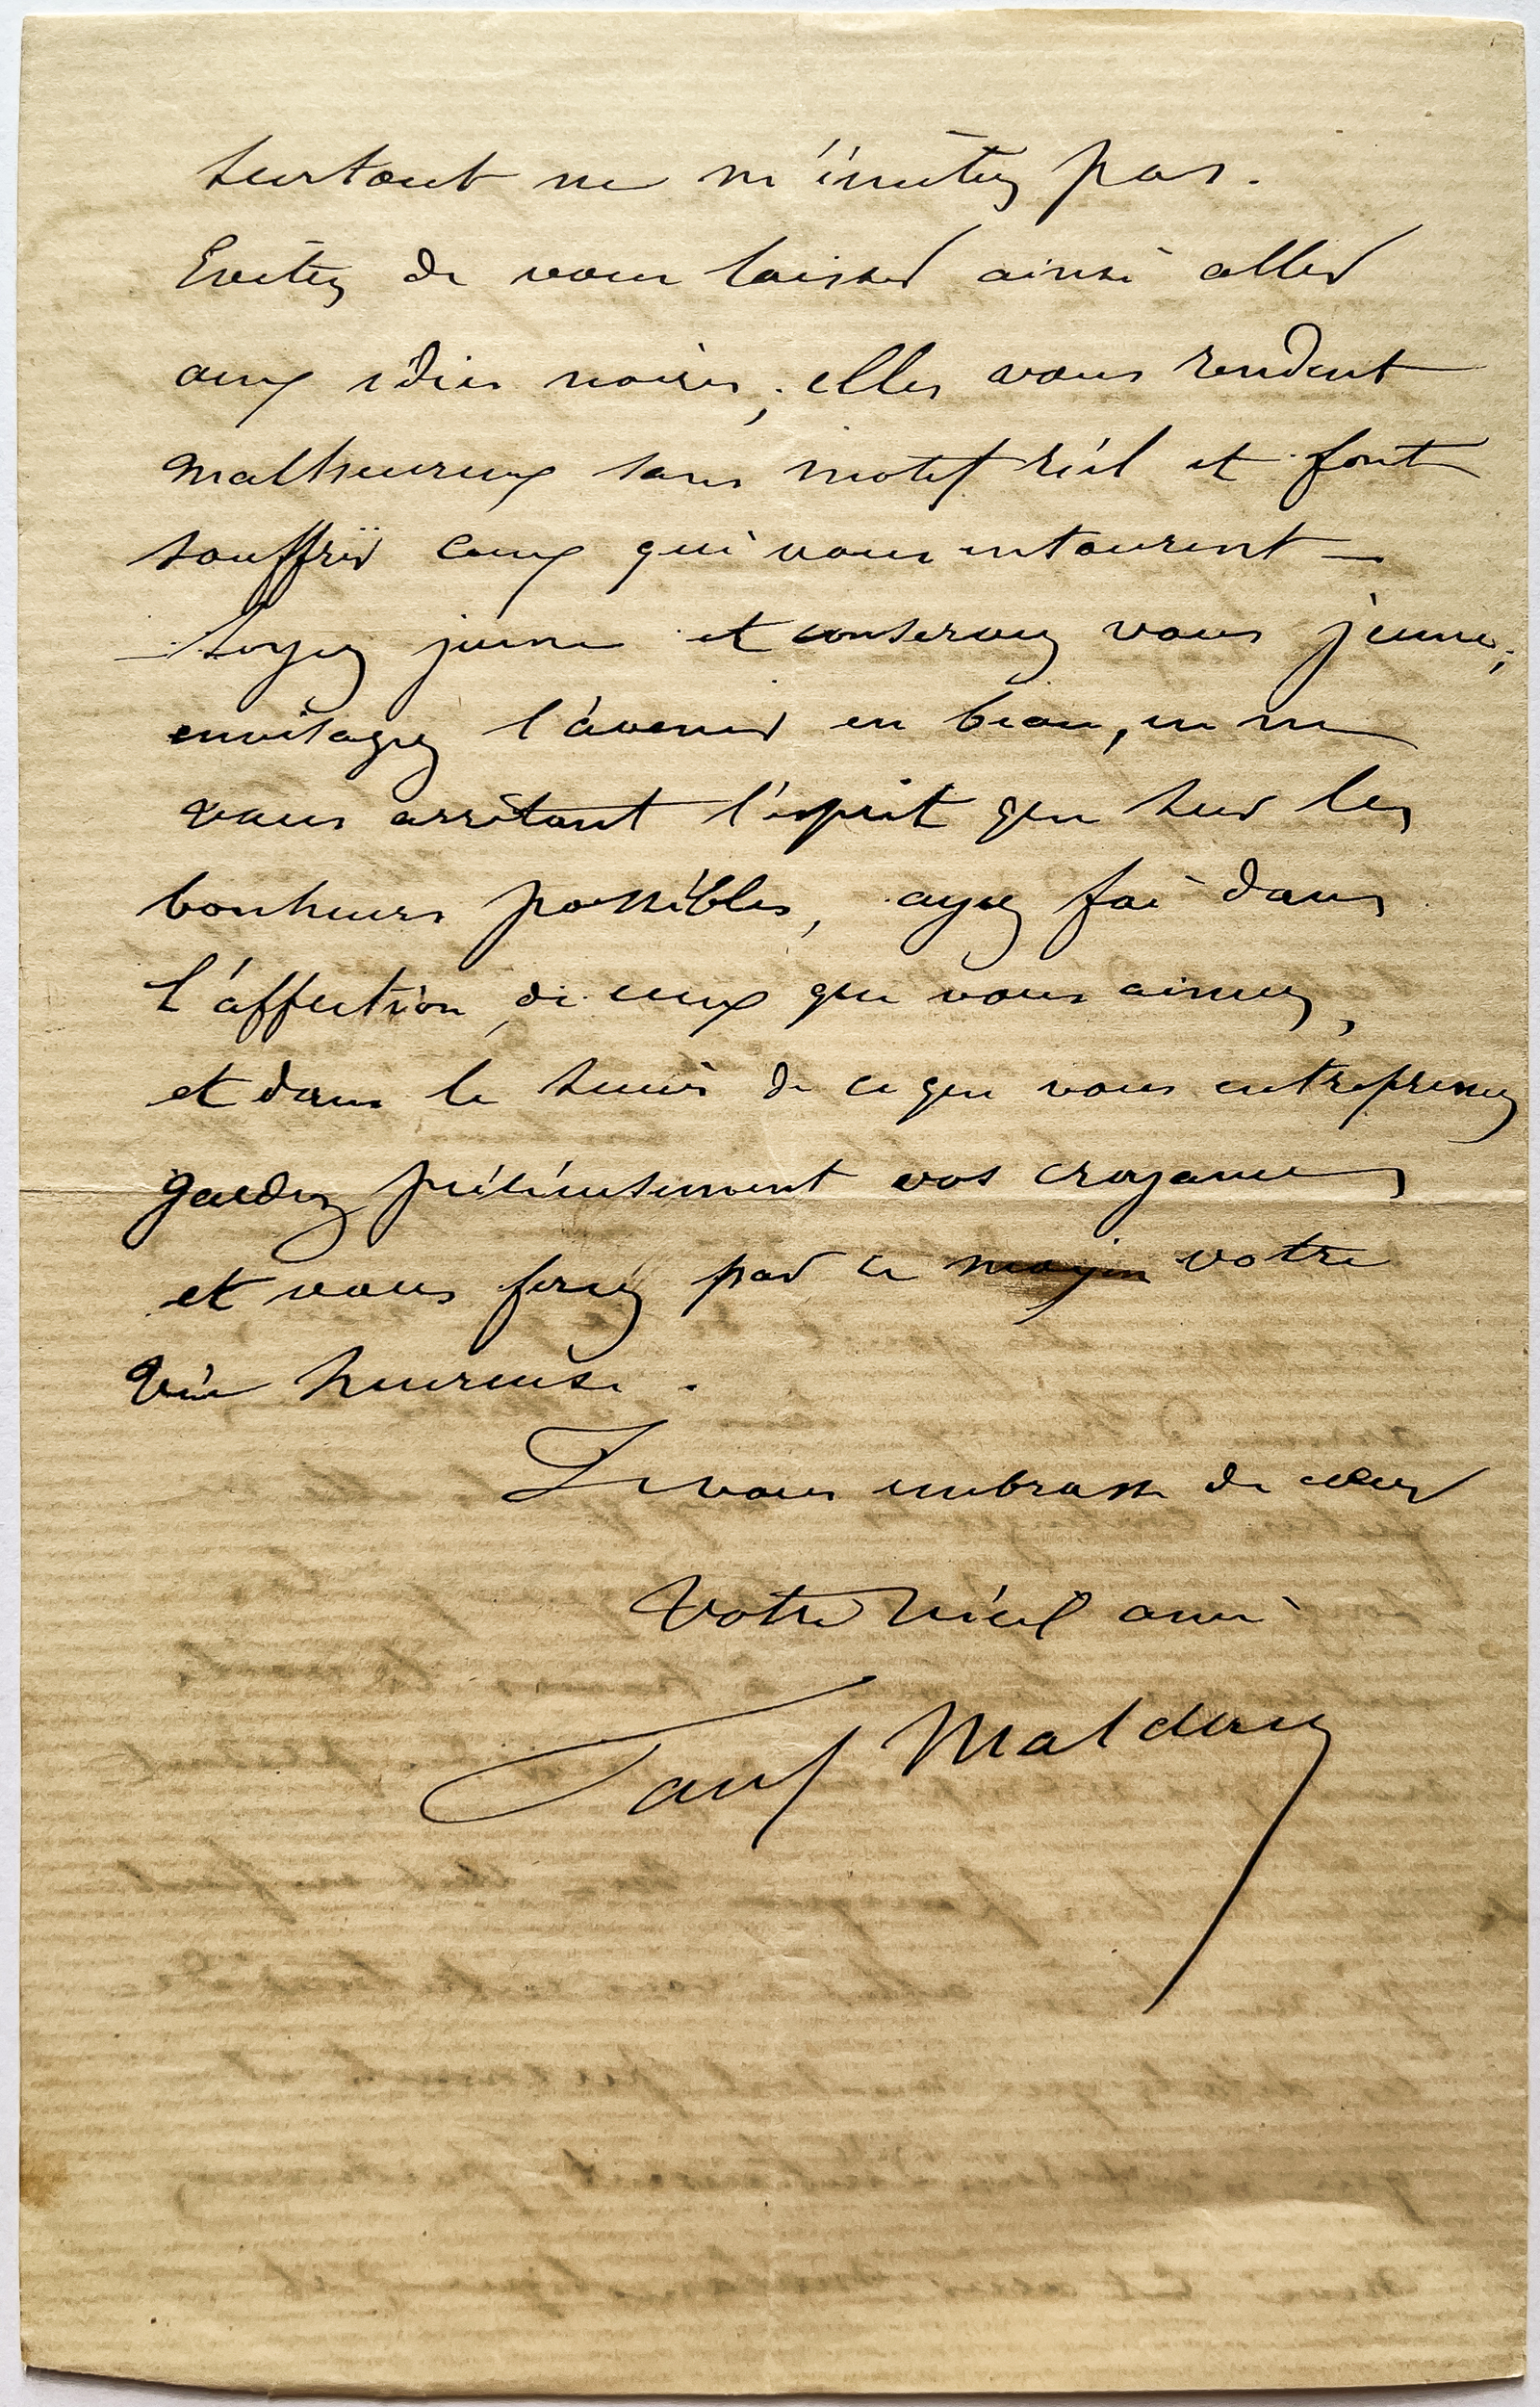 surtout ne m'imitez pas.
Evitez de vous laisser ainsi aller
aux idées noires; elles vous rendent
malheureux sans motif réel et font
souffrir ceux qui vous entourent —
— Soyez jeune et conservez vous jeune;
envisagez l'avenir en beau, en ne
vous arrêtant l'esprit que sur les
bonheurs possibles, ayez foi dans
l'affection de ceux que vous aimez,
et dans le succès de ce que vous entreprenez
gardez précieusement vos croyances,
et vous ferez par ce moyen votre
vie heureuse.
Je vous embrasse de cœur
Votre vieil ami
Paul